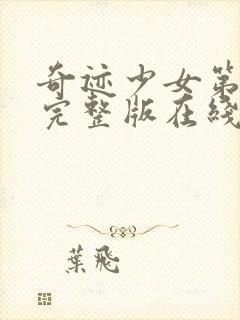 奇迹少女第
完整版在綫
葉飛